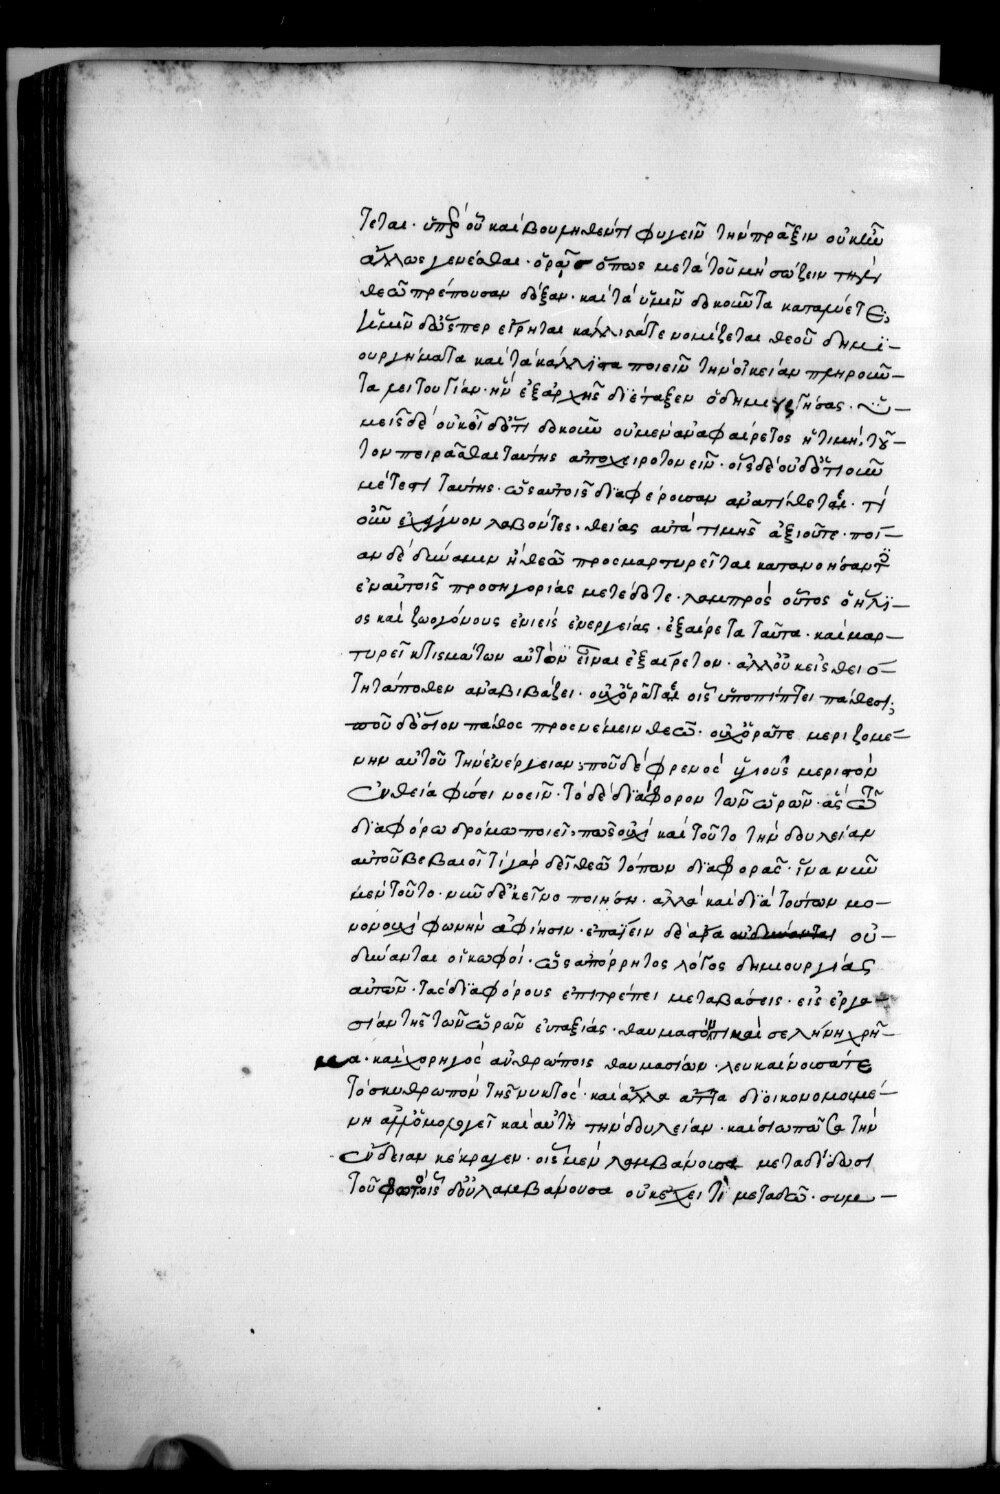 τεται· ὑπὲρ οὗ καὶ βουληθέντι φυγεῖν τὴν πρᾶξιν οὐκ ἦν
ἄλλως γενέσθαι· ὁρᾷς ὅπως μετὰ τοῦ μὴ σώζειν τὴν
θεῷ πρέπουσαν δόξαν· καὶ τὰ ὑμῖν δοκοῦντα καταλύετε;
ἡμῖν δὲ ὥσπερ εἴρηται κάλλιστά τε νομίζεται θεοῦ δημϊ–
ουργήματα καὶ τὰ κάλλιστα ποιεῖν τὴν οἰκείαν πληροῦν–
τα λειτουργίαν· ἣν ἐξαρχῆς διέταξεν ὁ δημιουργήσας· ὑ–
μεῖς δὲ οὐκ οἶδ ὅτι δοκοῦν οὐ μὲν ἀναφαίρετος ἡ τιμή, τοῦ–
τον πειρᾶσθαι ταύτης ἀποχειροτονεῖν· οἷς δὲ οὐδ ὁτιοῦν
μέτεστι ταύτης· ὡς αὐτοῖς διαφέρουσαν ἀνατίθεται· τί
οὖν ἐχέγγυον λαβόντες· θείας αὐτὰ τιμῆς ἀξιοῦτε· ποί–
αν δὲ δύναμιν ἣ θεῷ προσμαρτυρεῖται κατανοήσαντες
ἐν αὐτοῖς προσηγορίας μετέδοτε· λαμπρὸς οὗτος ὁ ἥλϊ–
ος καὶ ζωογόνους ἐνιεὶς ἐνεργείας· ἐξαίρετα ταῦτα· καὶ μαρ–
τυρεῖ κτισμάτων αὐτὸν εἶναι ἐξαίρετον· ἀλλ οὐκ εἰς θειό–
τητά ποθεν ἀναβιβάζει· οὐχ ὁρᾶται οἷς ὑποπίπτει πάθεσι;
ποῦ δ ὅσιον πάθος προσνέμειν θεῷ· οὐχ ὁρᾶτε μεριζομέ–
νην αὐτοῦ τὴν ἐνέργειαν; ποῦ δὲ φρενὸς ὑγιοῦς μεριστὸν
ἐν θείᾳ φύσει νοεῖν· τὸ δὲ διάφορον τῶν ὡρῶν· ἃς ἐν
διαφόρῳ δρόμῳ ποιεῖ, πῶς οὐχὶ καὶ τοῦτο τὴν δουλείαν
αὐτοῦ βεβαιοῖ τί γὰρ δεῖ θεῷ τόπων διαφορᾶς· ἵνα νῦν
μὲν τοῦτο· νῦν δ ἐκεῖνο ποιήσῃ· ἀλλὰ καὶ διὰ τούτων μο–
νονουχὶ φωνὴν ἀφίησιν· ἐπαΐειν δὲ οὐ–
δύνανται οἱ κωφοί· ὡς ἀπόρρητος λόγος δημιουργίας
αὐτῶν· τὰς διαφόρους ἐπιτρέπει μεταβάσεις· εἰς ἐργα–
σίαν τῆς τῶν ὡρῶν εὐταξίας· θαυμαστόν τι καὶ σελήνη χρῆ–
μα· καὶ χορηγὸς ἀνθρώποις θαυμασίων· λευκαίνουσά τε
τὸ σκυθρωπὸν τῆς νυκτός· καὶ ἄλλα ἄττα διοικονομουμέ–
νη ἀλλ ὁμολογεῖ καὶ αὐτὴ τὴν δουλείαν· καὶ σιωπῶσα τὴν
ἔνδειαν κέκραγεν· οἷς μὲν λαμβάνουσα μεταδίδωσι
τοῦ φωτός· οἷς δ οὐ λαμβάνουσα οὐκ ἔχει τὶ μεταδῷ· συμ–